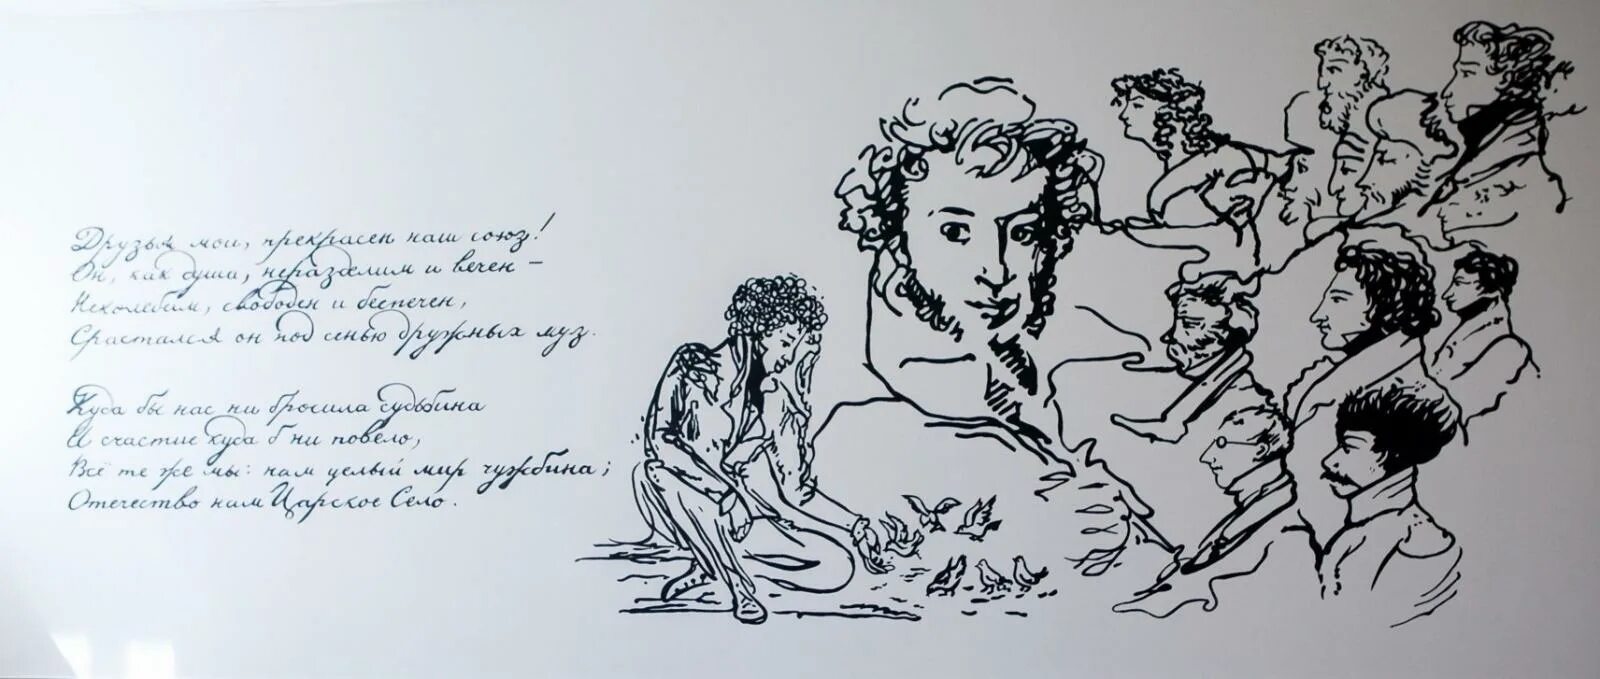 Друзья мои, прекрасен наш союз!
Он, как душа, неразделим и вечен –
Неколебим, свободен и беспечен,
Срастался он под сенью дружных муз.
Куда бы нас ни бросила судьбина
И счастие куда б ни повело,
Всё те же мы: нам целый мир чужбина;
Отечество нам Царское Село.